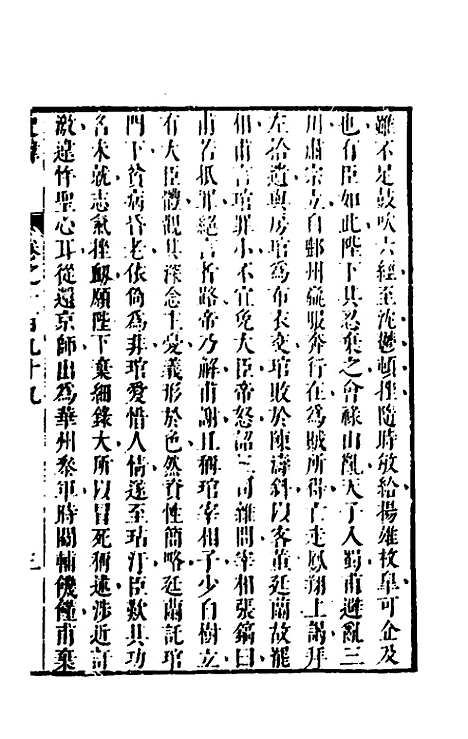 雖不足鼓吹六經至沈鬱頓挫隨時敏給揚雄枚皐可企及
也有臣如此陛下其忍棄之會祿山亂天子入蜀甫避亂三
川肅宗立自鄜州羸服奔行在為賊所得亡走鳳翔上謁拜
左拾遺與房琯為布衣交琯敗於陳濤斜以客董廷蘭故罷
相甫言琯罪小不宜免大臣帝怒詔三司雜問宰相張鎬曰
甫若抵罪絕言者路帝乃解甫謝且稱琯宰相子少自樹立
有大臣體觀其深念主憂義形於色然資性簡略廷蘭託琯
門下貧病昏老依倚為非琯愛惜人情遂至玷汙臣歎其功
名未就志氣挫衂願陛下棄細錄大所以冒死稱述涉近訐
激違忤聖心耳從還京師出為華州參軍時關輔饑僅甫棄
卷之一百九十九
三